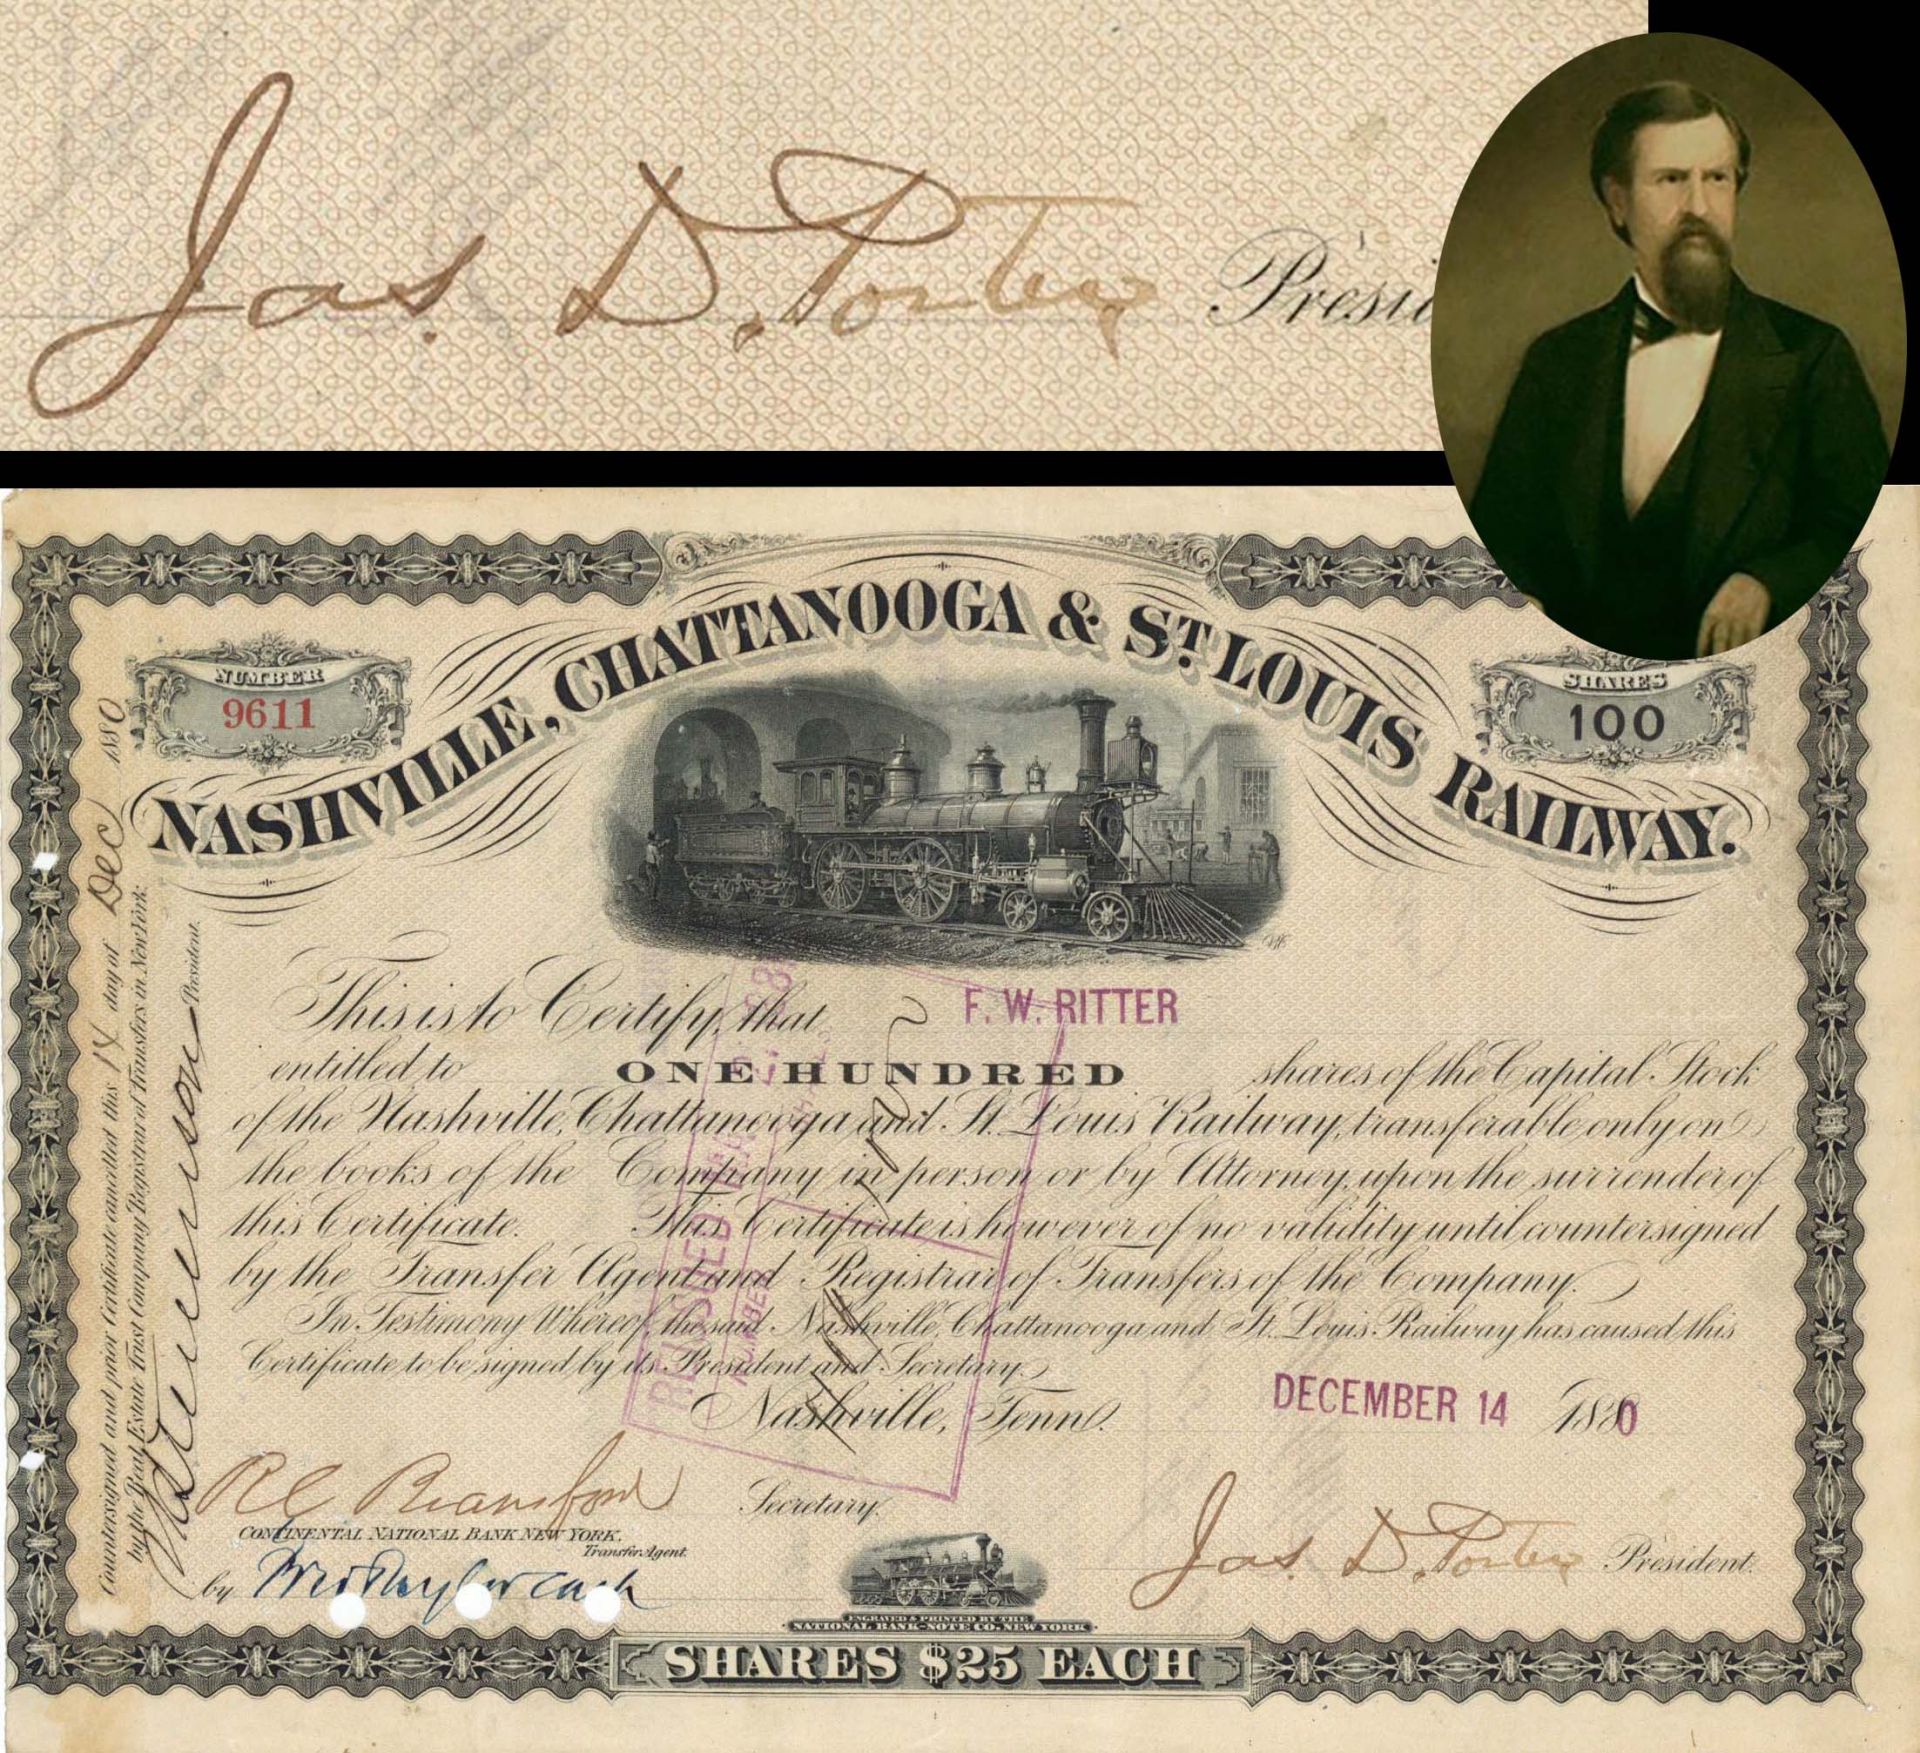 Jas. D. Porter Presi
NASHVILLE, CHATTANOOGA & ST. LOUIS RAILWAY.
NUMBER
9611
SHARES
100
This is to Certify, that F. W. RITTER
entitled to ONE HUNDRED shares of the Capital Stock
of the Nashville, Chattanooga and St. Louis Railway, transferable only on
the books of the Company in person or by Attorney, upon the surrender of
this Certificate. This Certificate is however of no validity until countersigned
by the Transfer Agent and Registrar of Transfers of the Company.
In Testimony Whereof, the said Nashville, Chattanooga and St. Louis Railway has caused this
Certificate to be signed by its President and Secretary.
Nashville, Tenn. DECEMBER 14 1880
R C Bransford Secretary.
CONTINENTAL NATIONAL BANK NEW YORK,
Transfer Agent.
by
Jas. D. Porter President.
ENGRAVED & PRINTED BY THE
NATIONAL BANK-NOTE CO. NEW YORK
SHARES $25 EACH
Countersigned and prior Certificate cancelled this 14 day of Dec 1880
by the Real Estate Trust Company Registrar of Transfers in New York.
President.